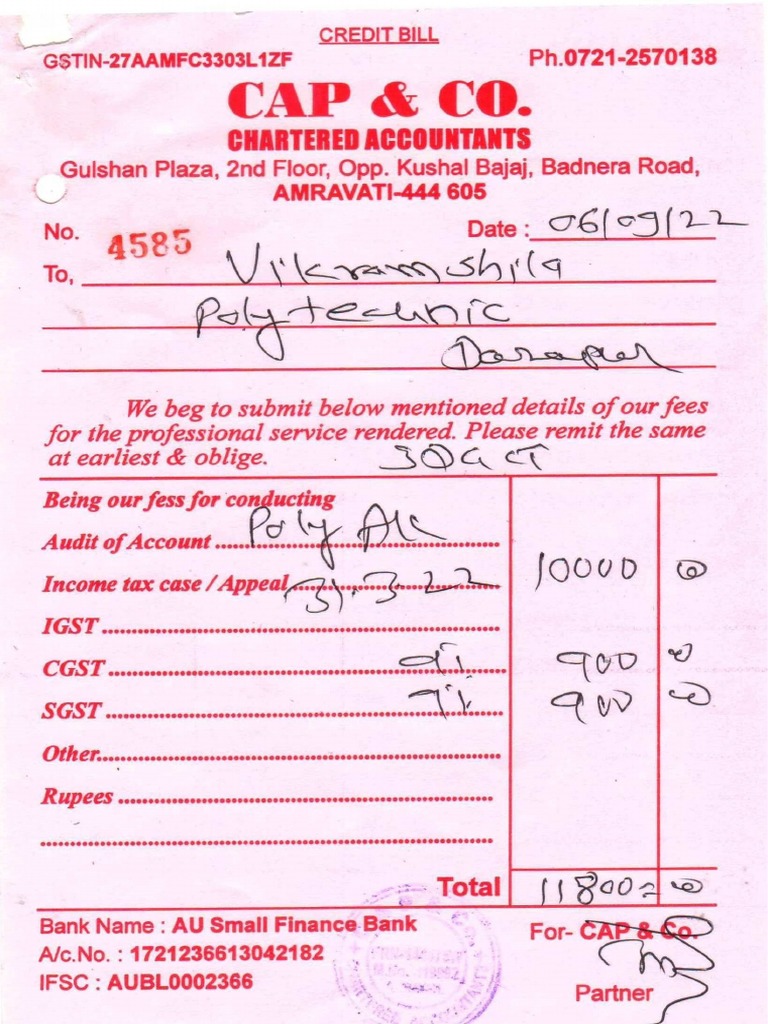 CREDIT BILL
GSTIN-27AAMFC3303L1ZF Ph.0721-2570138
CAP & CO.
CHARTERED ACCOUNTANTS
Gulshan Plaza, 2nd Floor, Opp. Kushal Bajaj, Badnera Road,
AMRAVATI-444 605
No. 4585 Date : 06/09/22
To, Vikramshila
Polytechnic
Darapur
We beg to submit below mentioned details of our fees
for the professional service rendered. Please remit the same
at earliest & oblige.
Being our fess for conducting
Audit of Account Poly A/c
Income tax case / Appeal 31.3.22 10000 0
IGST
CGST 9% 900 0
SGST 9% 900 0
Other
Rupees
Total 11800=0
Bank Name : AU Small Finance Bank
A/c.No. : 1721236613042182
IFSC : AUBL0002366
For- CAP & Co.
Partner